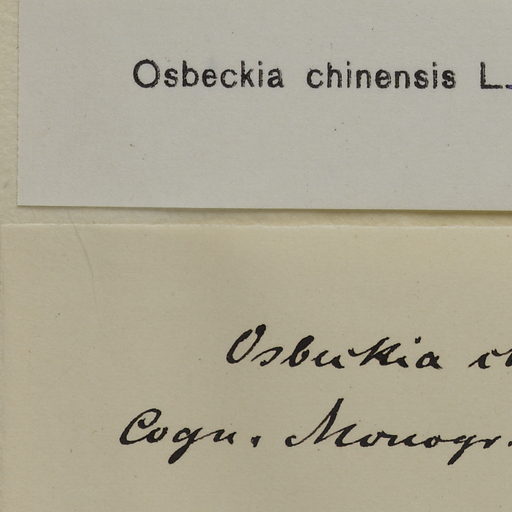 Osbeckia chinensis L.
Osbeckia ch
Cogn. Monogr.